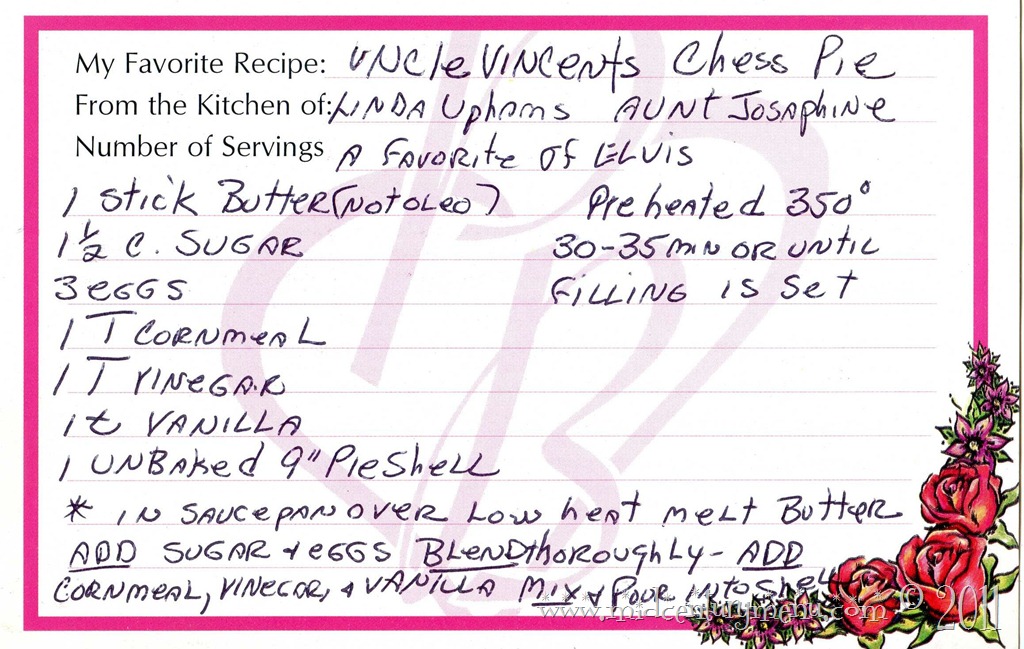 My Favorite Recipe: UNcle VINCENts Chess Pie
From the Kitchen of: LINDA Uphams AUNT JOSAphine
Number of Servings A FAVORite OF ELVIS
1 stick Butter (NOT OLEO) Preheated 350°
1 ½ C. SUGAR 30-35 min OR UNTIL
3 eGGS FILLING IS Set
1 T CORNmeAL
1 T VINeGAR
1 t VANILLA
1 UNBaked 9" Pie Shell
* IN SAUCepAN OVER LOW heAT meLT BUTTeR
ADD SUGAR + eGGS BLEND thoroughly - ADD
CORNMEAL, VINEGAR, + VANILLA MIX + POUR INTO Shell
www.midcenturymenu.com © 2011